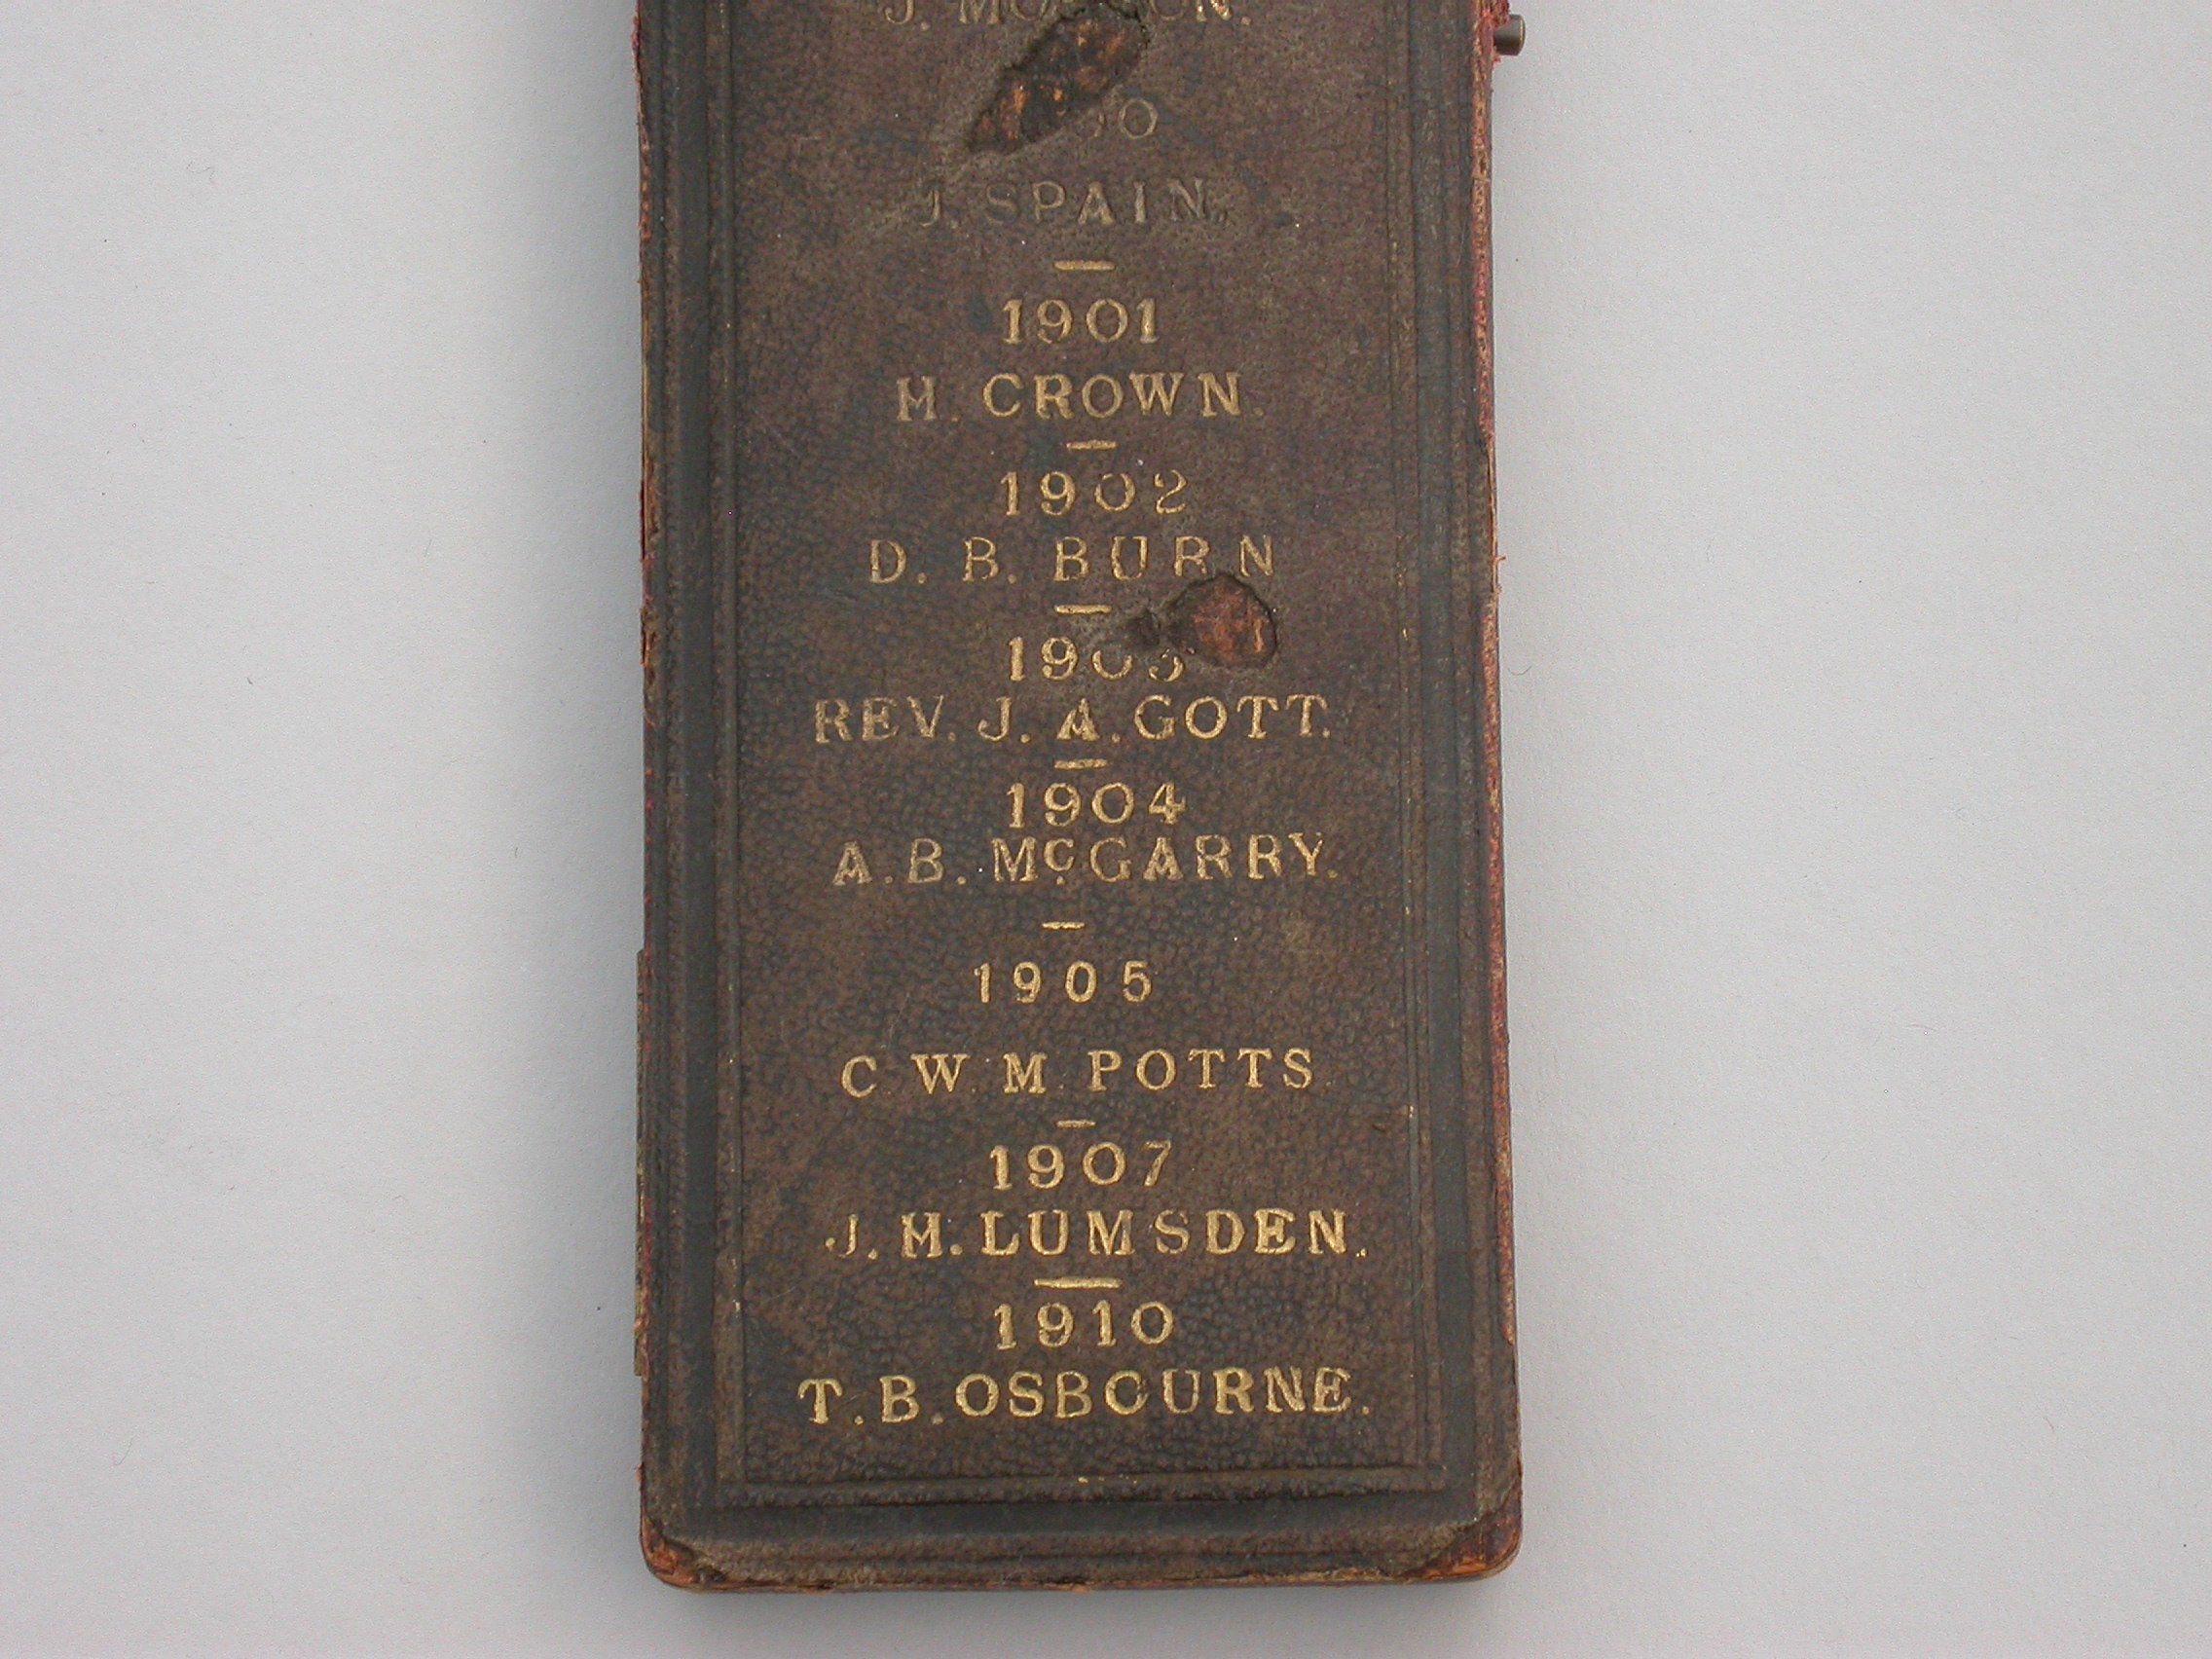 J.
J. SPAIN.
1901
H. CROWN.
1902
D. B. BURN
1903
REV. J. A. GOTT.
1904
A. B. McGARRY.
1905
C. W. M. POTTS.
1907
J. H. LUMSDEN.
1910
T. B. OSBOURNE.